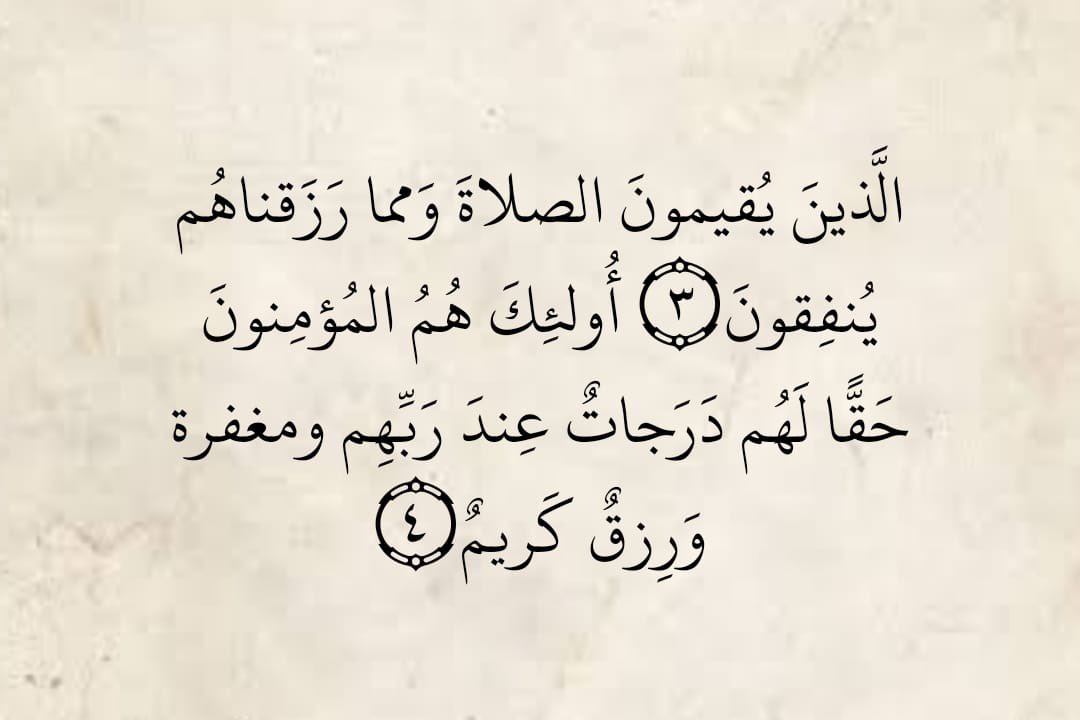 الَّذينَ يُقيمونَ الصلاةَ وَمما رَزَقناهُم
يُنفِقونَ ٣ أُولئِكَ هُمُ المُؤمِنونَ
حَقًّا لَهُم دَرَجاتٌ عِندَ رَبِّهِم ومغفرة
وَرِزقٌ كَريمٌ ٤